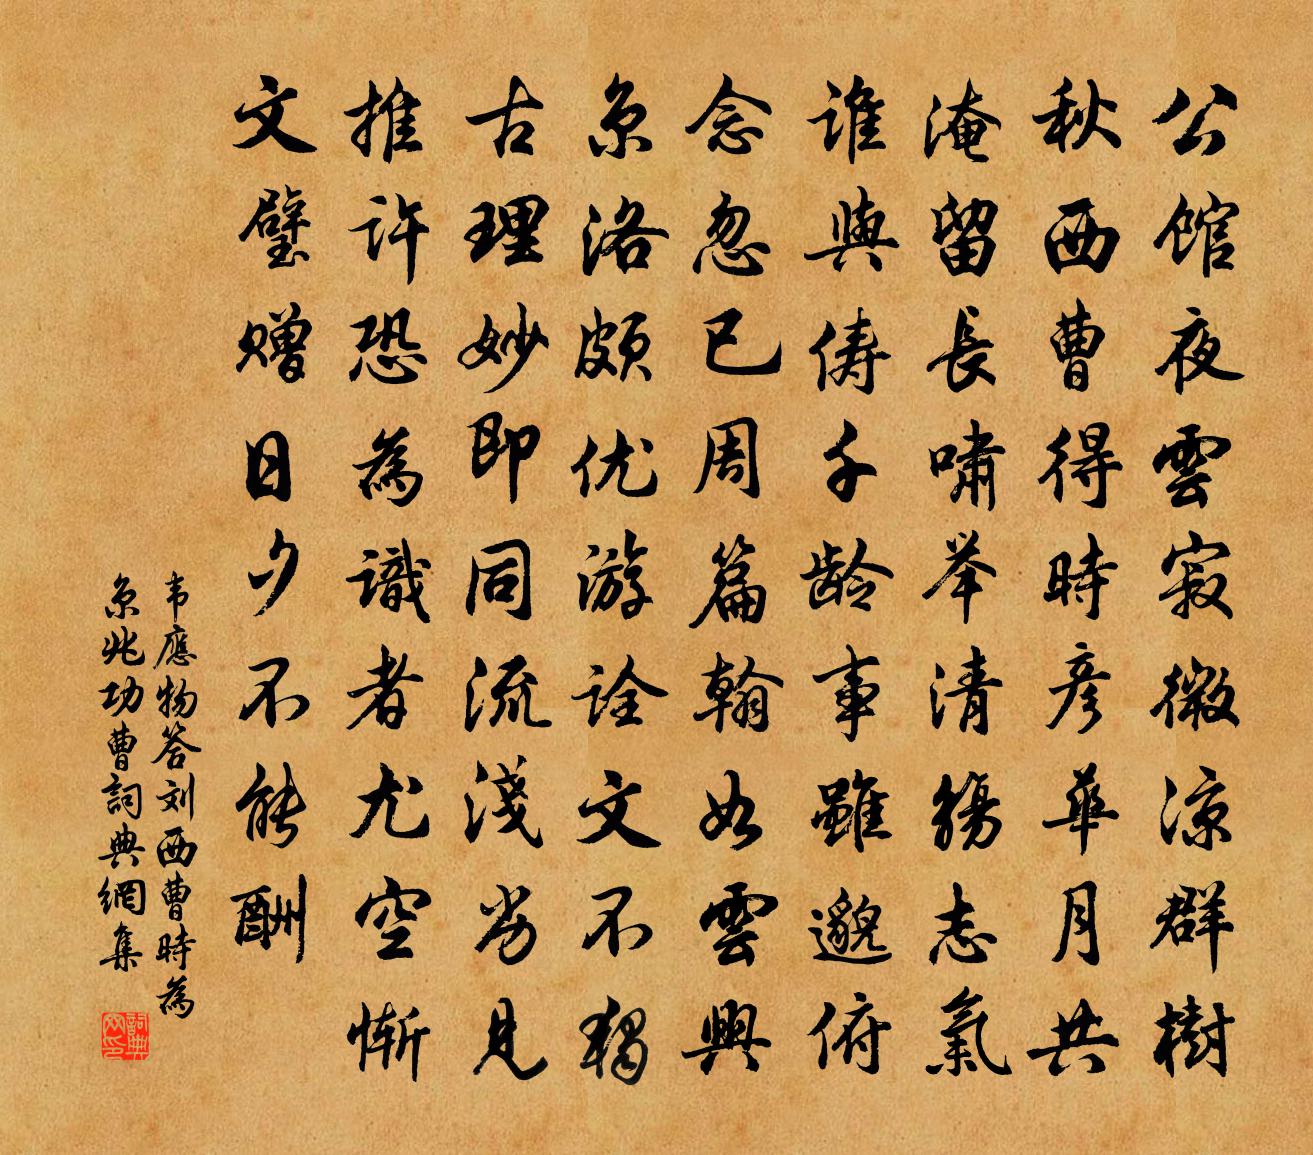 公館夜雲寂微涼群樹
秋西曹得時彦華月共
淹留長嘯举清觴志氣
谁與俦千龄事雖邈俯
念忽已周篇翰如雲興
京洛颇优游诠文不独
古理妙即同流淺劣見
推许恐為識者尤空惭
文璧赠日夕不能酬
韦應物答刘西曹時為
京兆功曹詞典網集
詞典网印